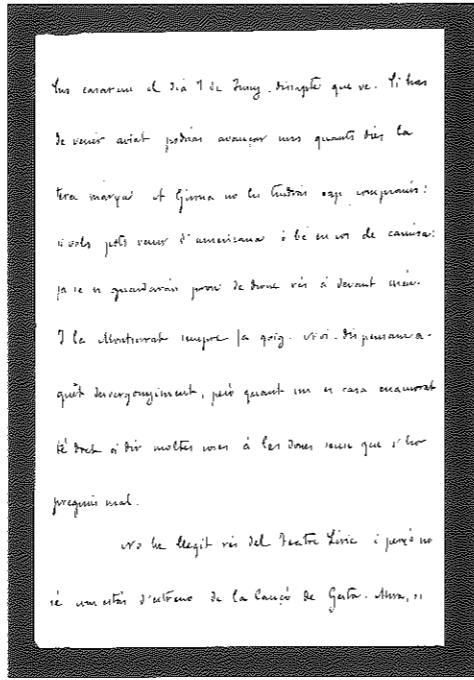 Ens casarem el dià 7 de Juny, dissapte que ve. Si has
de venir aviat podrias avançar uns quants dies la
teva marxa. A Girona no hi tindràs cap compromís:
si vols pots venir d'americana ó bé en cos de camisa:
ja se'n guardaràn prou de dirne res á devant meu.
I la Montserrat sempre fa goig. Noi, dispensam a-
quet desvergonyiment, peró quant un es casa enamorat
té dret á dir moltes coses á les dones sense que s'ho
prenguin mal.
No he llegit res del Teatre Líric i perçò no
sé com estás d'estreno de la Cançó de Gesta. Mira, si